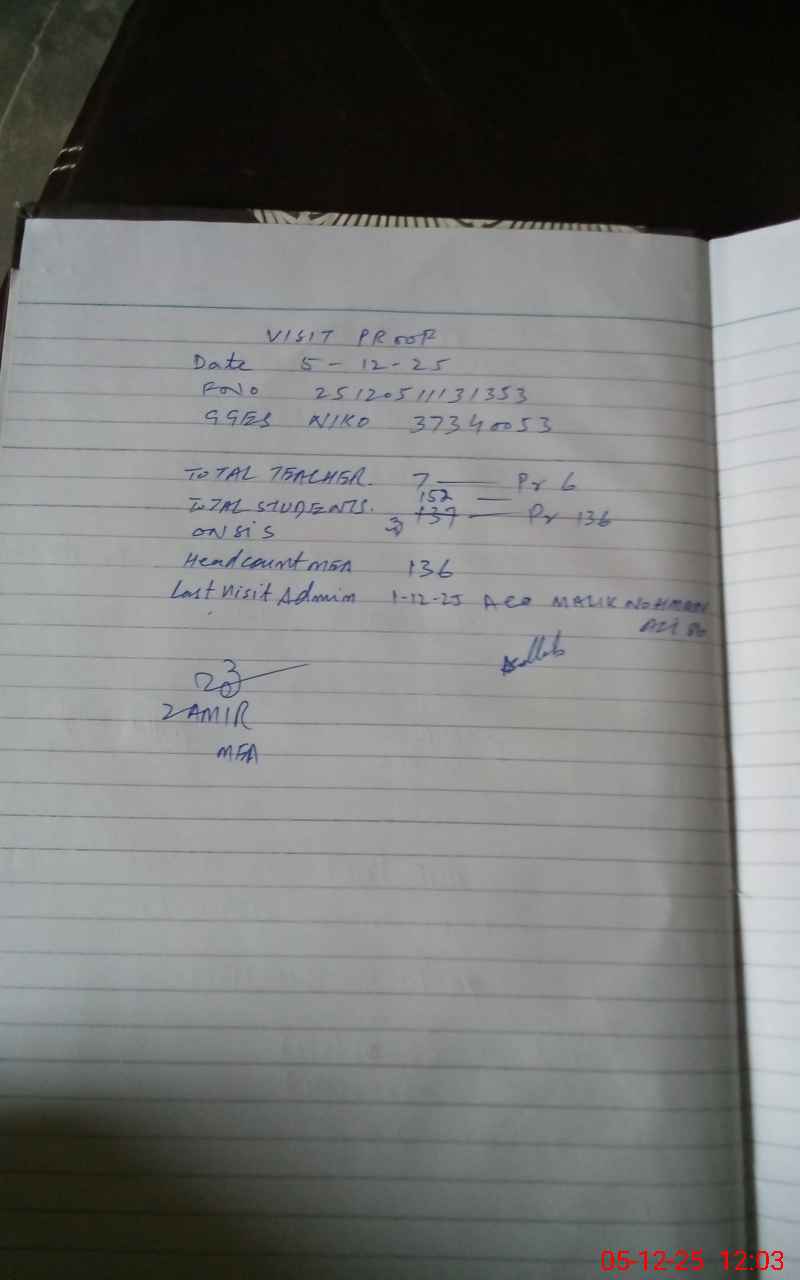 VISIT PROOF
Date 5-12-25
FNO 2512051131353
GGES NIKO 37340053
TOTAL TEACHER. 7 — Pr 6
152 —
TOTAL STUDENTS. 137 — Pr 136
ON SIS
Headcount MEA 136
Last Visit Admin 1-12-25 AEO MALIK NOHMAN
ZAMIR
MEA
05-12-25 12:03